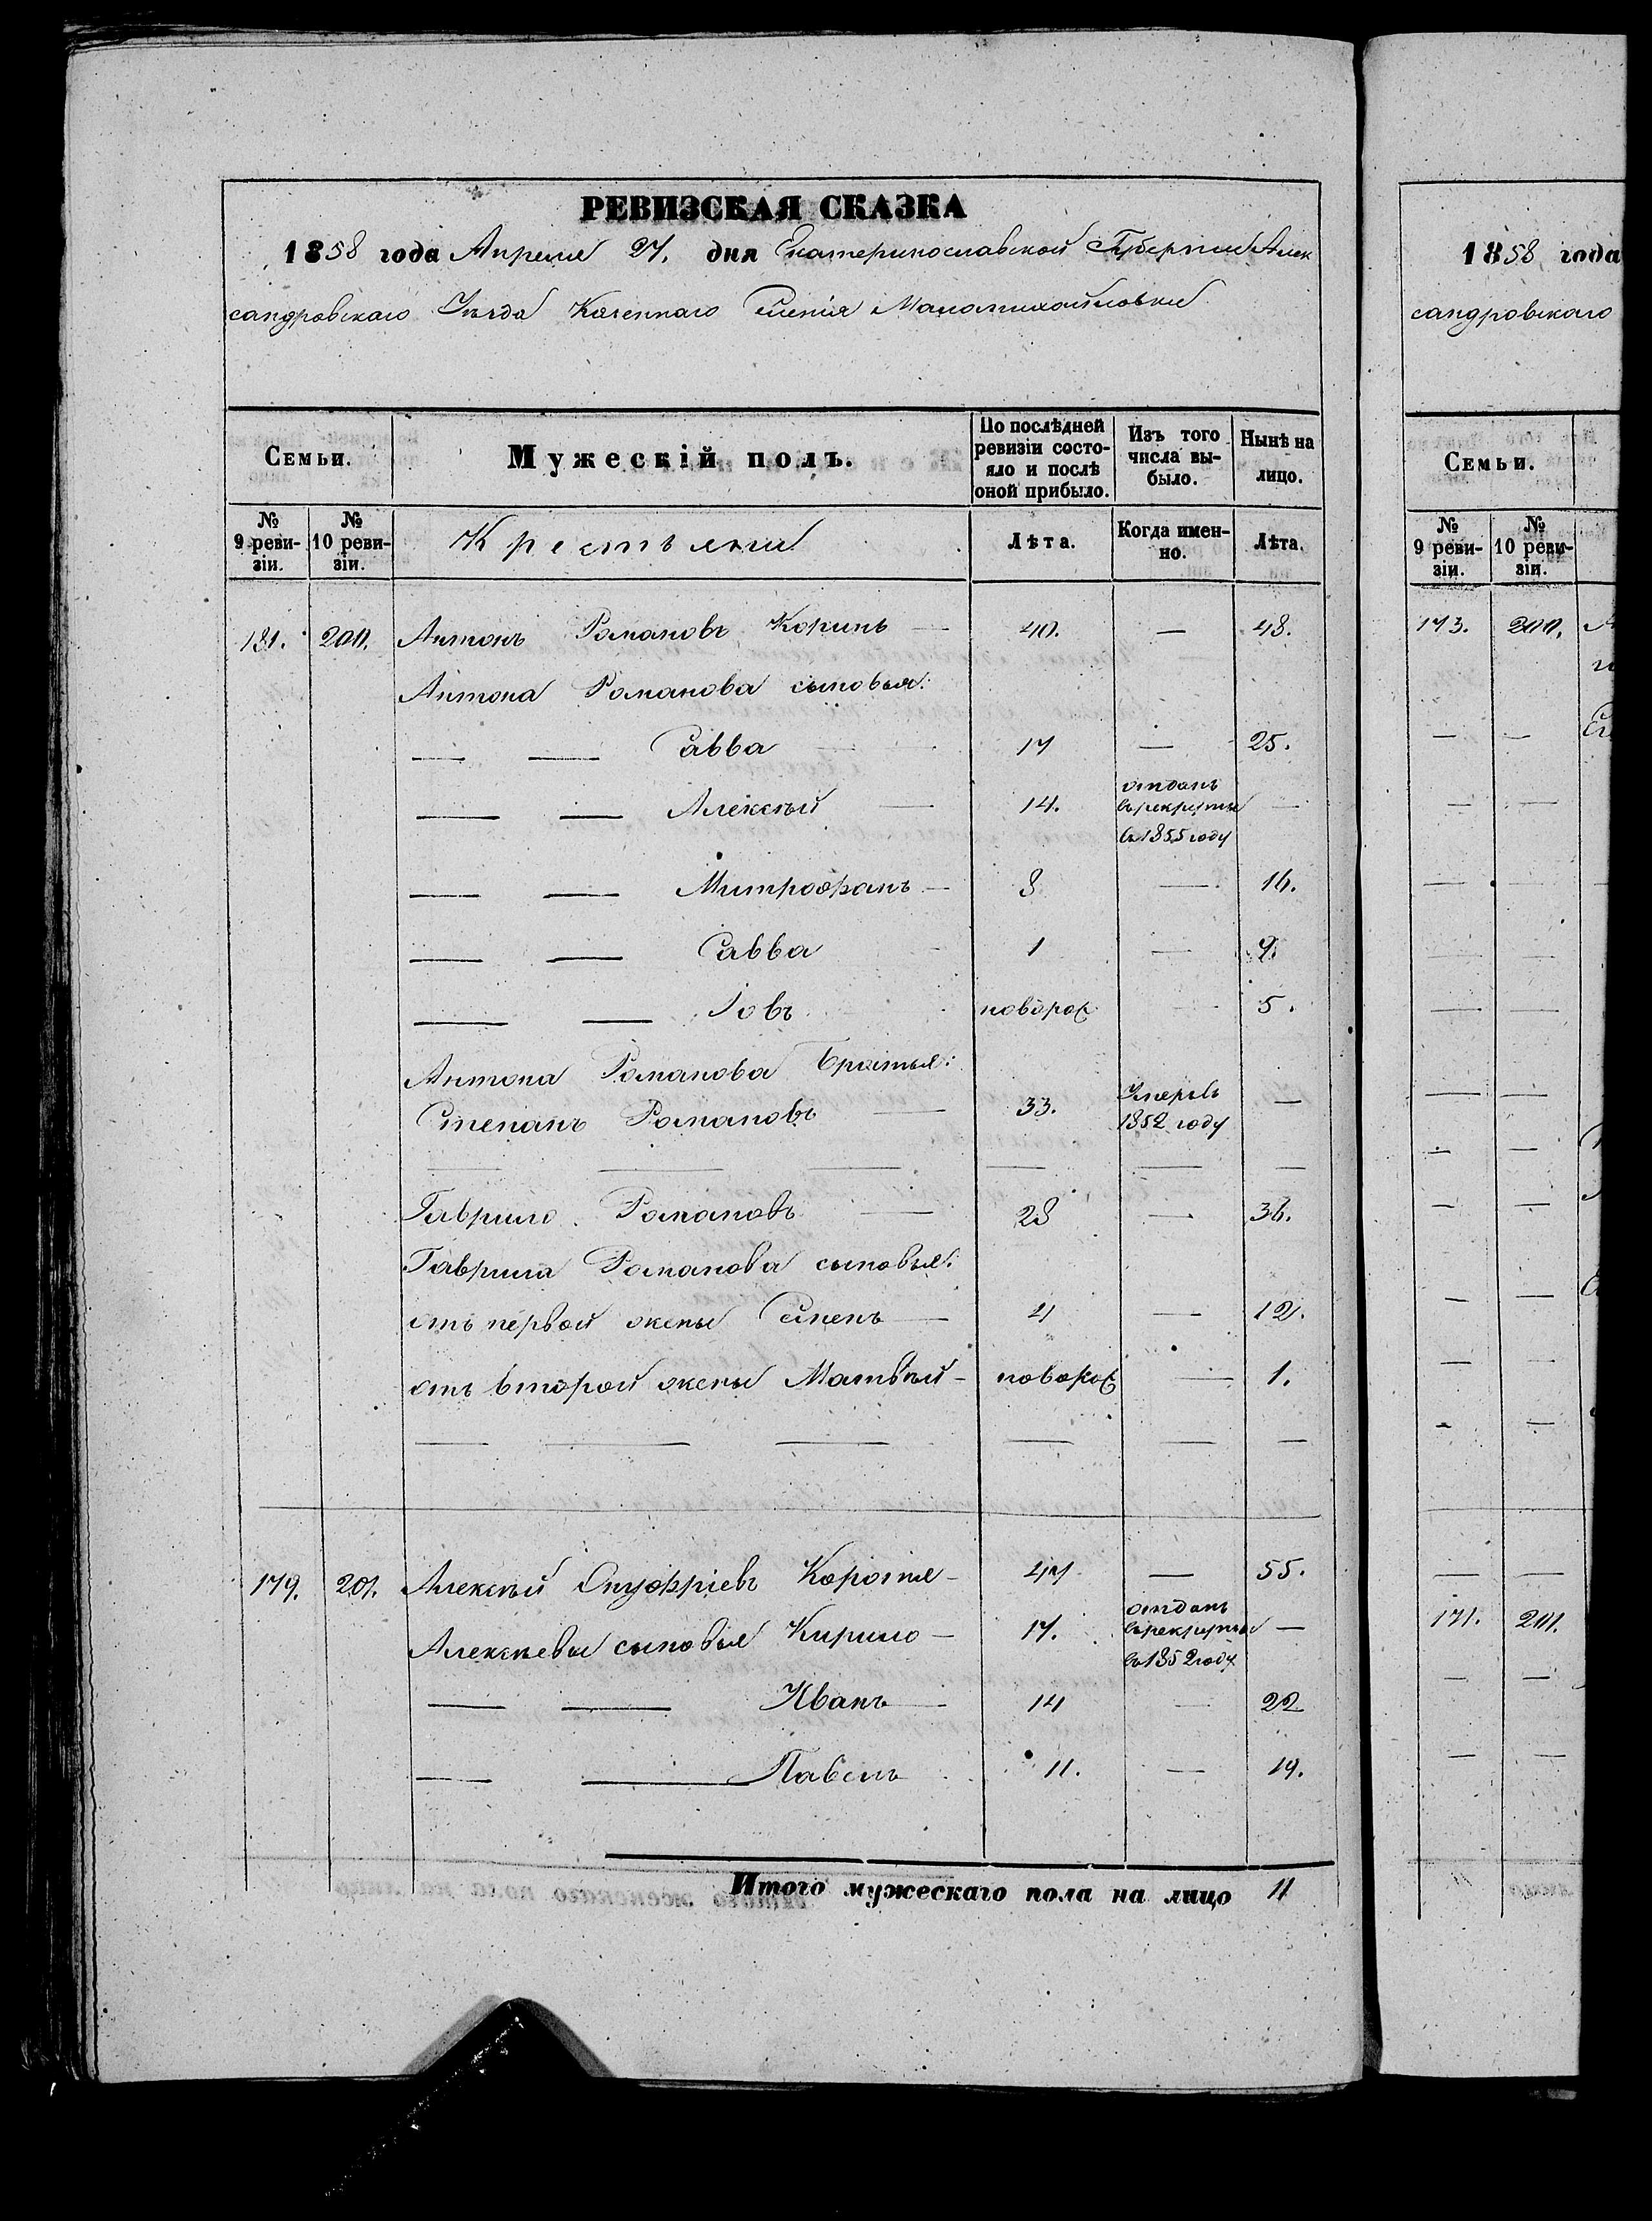 РЕВИЗСКАЯ СКАЗКА
1858 года Апреля 27. дня Екатеринославской Губернии Алек
сандровскаго Уѣзда Казеннаго Селенія Маломихайловки
Семьи. Мужескій полъ. По послѣдней ревизіи состояло и послѣ оной прибыло. Изъ того числа выбыло. Нынѣ на лицо.
№ 9 ревизіи. № 10 ревизіи. Крестьяне Лѣта. Когда именно. Лѣта.
181. 200. Антонъ Романовъ 40. — 48.
Антона Романова сыновья:
— — Савва — 17 — 25.
— — Алексѣй — 14. отданъ въ рекруты в 1855 году —
— — Митрофанъ — 8 — 16.
— — Савва 1 — 9.
— — Іовъ новорож — 5.
Антона Романова братья:
Степанъ Романовъ — 33. Умеръ въ 1852 году —
— — — — — —
Гаврило Романовъ — 28 — 36.
Гаврила Романова сыновья:
отъ первой жены Семенъ — 4 — 12.
отъ второй жены Матвѣй — новорож — 1.
— — — — — —
179. 201. Алексѣй Онуфріевъ 47 — 55.
Алексѣевы сыновья Кирило — 17. отданъ въ рекруты въ 1852 году —
— — Иванъ — 14 — 22
— — Павелъ 11. — 19.
Итого мужескаго пола на лицо 11
1858 года
сандровскаго
Семьи.
№ 9 ревизіи. № 10 ревизіи.
173. 200.
171. 201.